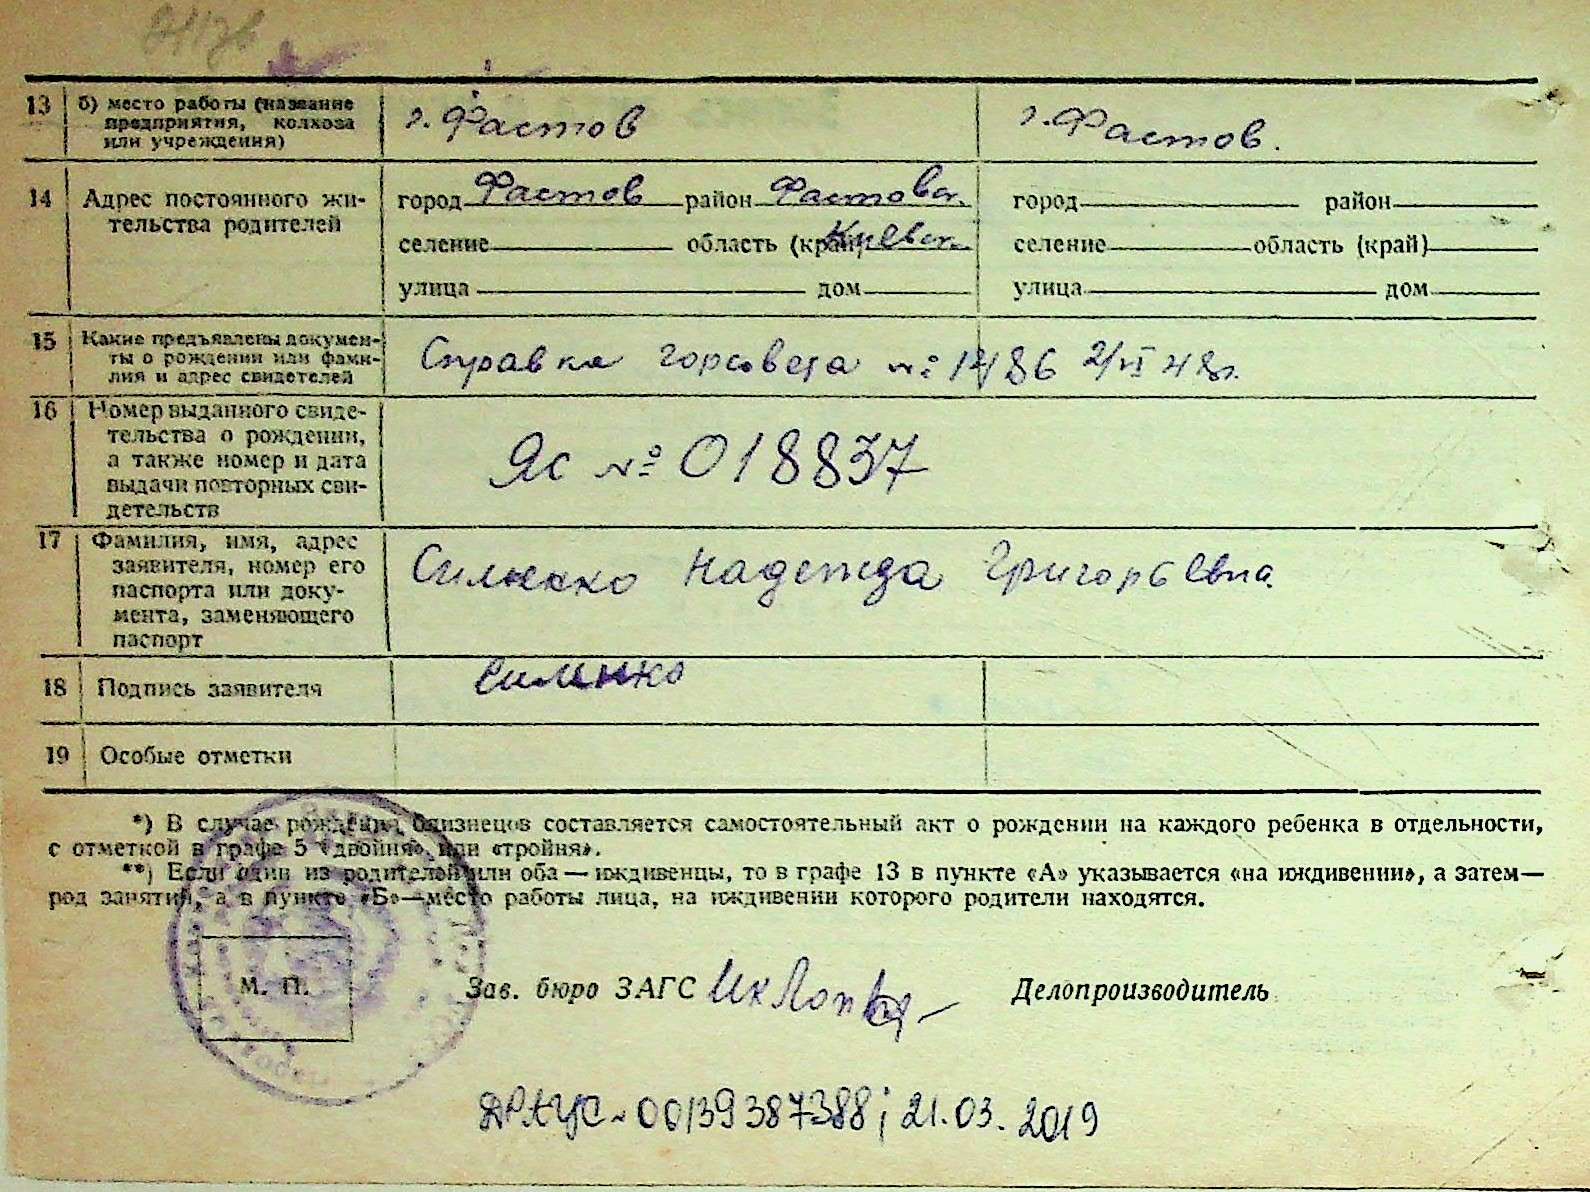 13 б) место работы (название
предприятия, колхоза
или учреждения)
г. Фастов
г. Фастов.
14 Адрес постоянного жи-
тельства родителей
город Фастов район Фастовск.
селение область (край) Киевск.
улица дом
город район
селение область (край)
улица дом
15 Какие предъявлены докумен-
ты о рождении или фами-
лия и адрес свидетелей
Справка горсовета №
16 Номер выданного свиде-
тельства о рождении,
а также номер и дата
выдачи повторных сви-
детельств
Яс № 018837
17 Фамилия, имя, адрес
заявителя, номер его
паспорта или доку-
мента, заменяющего
паспорт
Силенко Надежда Григорьевна.
18 Подпись заявителя
Силенко
19 Особые отметки
*) В случае рождения близнецов составляется самостоятельный акт о рождении на каждого ребенка в отдельности,
с отметкой в графе 5 «двойня» или «тройня».
**) Если один из родителей или оба — иждивенцы, то в графе 13 в пункте «А» указывается «на иждивении», а затем—
род занятий, а в пункте «Б»—место работы лица, на иждивении которого родители находятся.
М. П.
Зав. бюро ЗАГС
Делопроизводитель
ДРАЦС - 00139387388; 21.03.2019